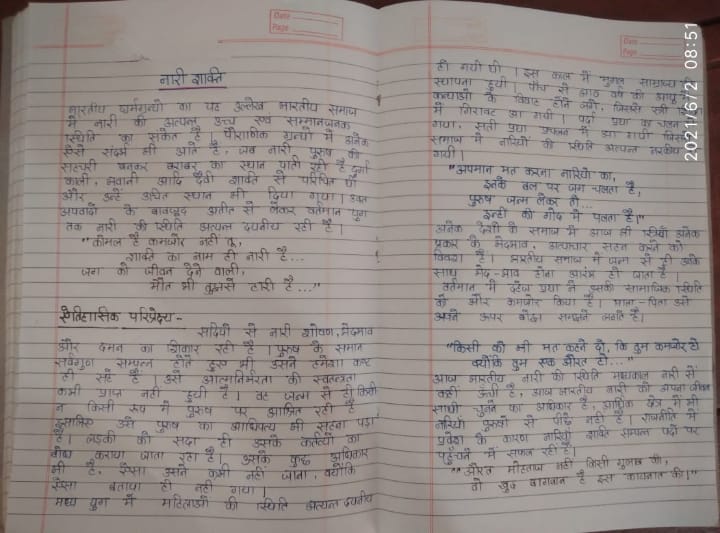 Date
Page
नारी शक्ति
भारतीय धर्मग्रन्थो का यह उल्लेख भारतीय समाज
में नारी की अत्यन्त उच्च एवं सम्मानजनक
स्थिति का संकेत है । पौराणिक ग्रन्थो में अनेक
ऐसे संदर्भ भी आते है, जब नारी पुरुष की
सहचरी बनकर बराबर का स्थान पाती रही है दुर्गा
काली, भवानी आदि दैवी शक्ति से परिचित थी
और उन्हे उचित स्थान भी दिया गया । उक्त
अपवादो के बावजूद अतीत से लेकर वर्तमान युग
तक नारी की स्थिति अत्यन्त दयनीय रही है ।
"कोमल है कमजोर नहीं तू,
शक्ति का नाम ही नारी है...
जग को जीवन देने वाली,
मौत भी तुझसे हारी है..."
ऐतिहासिक परिप्रेक्ष्य -
सदियो से नारी शोषण, भेदभाव
और दमन का शिकार रही है । पुरुष के समान
सर्वगुण सम्पन्न होते हुए भी उसने हमेशा कष्ट
ही सहे है । उसे आत्मनिर्भरता की स्वतन्त्रता
कभी प्राप्त नही हुयी है । वह जन्म से ही किसी
न किसी रूप में पुरुष पर आश्रित रही है
इसलिए उसे पुरुष का आधिपत्य भी सहना पड़ा
है । लड़की को सदा ही उसके कर्तव्यो का
बोध कराया जाता रहा है । उसके कुछ अधिकार
भी है, ऐसा उसने कभी नहीं जाना, क्योंकि
ऐसा बताया ही नही गया ।
मध्य युग में महिलाओ की स्थिति अत्यन्त दयनीय
Date
Page
हो गयी थी । इस काल में मुगल साम्राज्य की
स्थापना हुयी । पाँच से आठ वर्ष की आयु में
कन्याओ के विवाह होने लगे, जिससे स्त्री
में गिरावट आ गयी । पर्दा प्रथा का चलन
गया, सती प्रथा प्रचलन में आ गयी जिससे
समाज में नारियों की स्थिति अत्यन्त नरकीय
गयी ।
"अपमान मत करना नारियो का,
इनके बल पर जग चलता है,
पुरुष जन्म लेकर तो...
इन्ही की गोद में पलता है ।"
अनेक देशो के समाज में आज भी स्त्रियाँ अनेक
प्रकार के भेदभाव, अत्याचार सहन करने को
विवश है । भारतीय समाज में जन्म से ही उनके
साथ भेद-भाव होना आरंभ हो जाता है ।
वर्तमान में दहेज प्रथा ने इसकी सामाजिक स्थिति
को और कमजोर किया है । माता-पिता उसे
अपने ऊपर बोझा समझने लगते है ।
"किसी को भी मत कहने दो, कि तुम कमजोर हो
क्योंकि तुम एक औरत हो..."
आज भारतीय नारी की स्थिति मध्यकाल नारी से
कहीं ऊँची है, आज भारतीय नारी को अपना जीवन
साथी चुनने का अधिकार है, आर्थिक क्षेत्र में भी
नारियाँ पुरुषो से पीछे नही है । राजनीति में
प्रवेश के कारण नारियाँ शक्ति सम्पन्न पदो पर
पहुँचने में सफल रही है ।
"औरत मोहताज नही किसी गुलाब की,
वो खुद बागबान है इस कायनात की ।"
2021/6/2 08:51